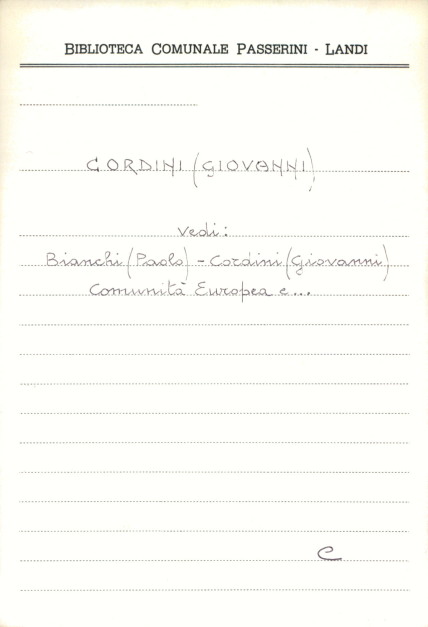 BIBLIOTECA COMUNALE PASSERINI - LANDI
CORDINI (GIOVANNI)
Vedi:
Bianchi (Paolo) - Cordini (Giovanni)
Comunità Europea e...
e